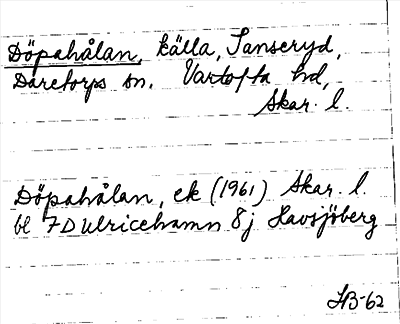 Döpahålan, källa, Janseryd,
Daretorps sn. Vartofta hd,
Skar. l.
Döpahålan, ek (1961) Skar. l.
bl 7D Ulricehamn 8j Havsjöberg
HB-62